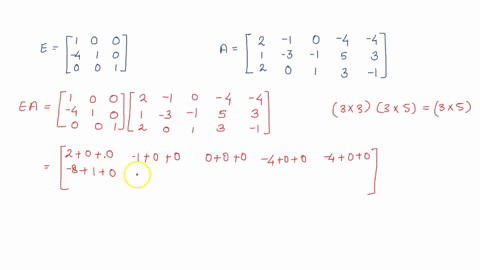 E = [1 0 0; -4 1 0; 0 0 1]
A = [2 -1 0 -4 -4; 1 -3 -1 5 3; 2 0 1 3 -1]
EA = [1 0 0; -4 1 0; 0 0 1] [2 -1 0 -4 -4; 1 -3 -1 5 3; 2 0 1 3 -1]
(3×3) (3×5) = (3×5)
= [2+0+.0 -1+0+0 0+0+0 -4+0+0 -4+0+0
-8+1+0